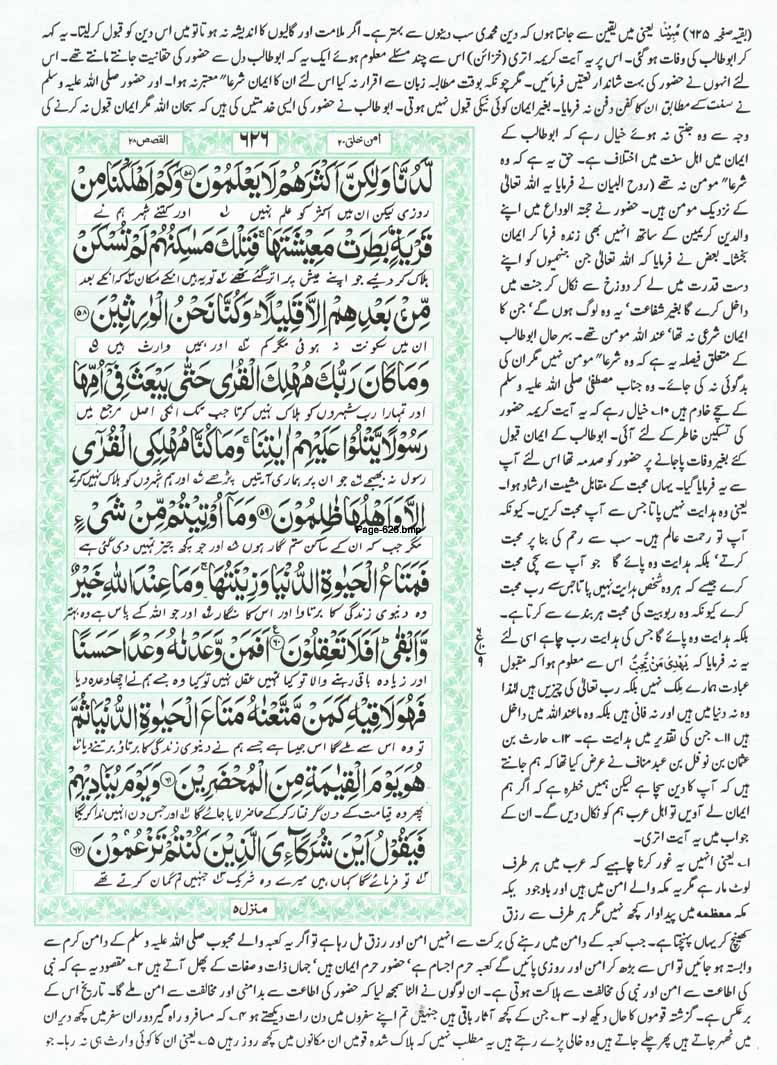 (بقیہ صفحہ ۶۲۵) مُبِیْنًا یعنی میں یقین سے جانتا ہوں کہ دین محمدی سب دینوں سے بہتر ہے۔ اگر ملامت اور گالیوں کا اندیشہ نہ ہوتا تو میں اس دین کو قبول کر لیتا۔ یہ کہہ
کر ابوطالب کی وفات ہو گئی۔ اس پر یہ آیت کریمہ اتری (خزائن) اس سے چند مسئلے معلوم ہوئے ایک یہ کہ ابوطالب دل سے حضور کی حقانیت جانتے مانتے تھے۔ اس
لئے انہوں نے حضور کی بہت شاندار نعتیں فرمائیں۔ مگر چونکہ بوقت مطالبہ زبان سے اقرار نہ کیا اس لئے ان کا ایمان شرعا" معتبر نہ ہوا۔ اور حضور صلی اللہ علیہ وسلم
نے سنت کے مطابق ان کا کفن دفن نہ فرمایا۔ بغیر ایمان کوئی نیکی قبول نہیں ہوتی۔ ابوطالب نے حضور کی ایسی خدمتیں کی ہیں کہ سبحان اللہ مگر ایمان قبول نہ کرنے کی
وجہ سے وہ جنتی نہ ہوئے خیال رہے کہ ابوطالب کے
ایمان میں اہل سنت میں اختلاف ہے۔ حق یہ ہے کہ وہ
شرعا" مومن نہ تھے (روح البیان نے فرمایا یہ اللہ تعالٰی
کے نزدیک مومن ہیں۔ حضور نے حجتہ الوداع میں اپنے
والدین کریمین کے ساتھ انہیں بھی زندہ فرما کر ایمان
بخشا۔ بعض نے فرمایا کہ اللہ تعالٰی جن جنمیوں کو اپنے
دست قدرت میں لے کر دوزخ سے نکال کر جنت میں
داخل کرے گا بغیر شفاعت' یہ وہ لوگ ہوں گے' جن کا
ایمان شرعی نہ تھا' عند اللہ مومن تھے۔ بہرحال ابوطالب
کے متعلق فیصلہ یہ ہے کہ وہ شرعا" مومن نہیں مگر ان کی
بدگوئی نہ کی جائے۔ وہ جناب مصطفیٰ صلی اللہ علیہ وسلم
کے سچے خادم ہیں ۱۰۔ خیال رہے کہ یہ آیت کریمہ حضور
کی تسکین خاطر کے لئے آئی۔ ابوطالب کے ایمان قبول
کئے بغیر وفات پا جانے پر حضور کو صدمہ تھا اس لئے آپ
سے یہ فرمایا گیا۔ یہاں محبت کے مقابل مشیت ارشاد ہوا۔
یعنی وہ ہدایت نہیں پاتا جس سے آپ محبت کریں۔ کیونکہ
آپ تو رحمت عالم ہیں۔ سب سے رحم کی بنا پر محبت
کرتے' بلکہ ہدایت وہ پائے گا جو آپ سے سچی محبت
کرے جیسے کہ ہر وہ شخص ہدایت نہیں پاتا جس سے رب محبت
کرے کیونکہ وہ ربوبیت کی محبت ہر بندے سے کرتا ہے۔
بلکہ ہدایت وہ پائے گا جس کی ہدایت رب چاہے اسی لئے
یہ نہ فرمایا کہ یَھْدِیْ مَنْ یُّحِبُّ اس سے معلوم ہوا کہ مقبول
عبادت ہمارے ملک نہیں بلکہ رب تعالٰی کی چیزیں ہیں لہٰذا
وہ نہ دنیا میں ہیں اور نہ فانی ہیں بلکہ وہ ماعند اللہ میں داخل
ہیں ۱۱۔ جن کی تقدیر میں ہدایت ہے۔ ۱۲۔ حارث بن
عثمان بن نوفل بن عبد مناف نے عرض کیا تھا کہ ہم جانتے
ہیں کہ آپ کا دین سچا ہے لیکن ہمیں خطرہ ہے کہ اگر ہم
ایمان لے آویں تو اہل عرب ہم کو نکال دیں گے۔ ان کے
جواب میں یہ آیت اتری۔
۱۔ یعنی انہیں یہ غور کرنا چاہیے کہ عرب میں ہر طرف
لوٹ مار ہے مگر یہ مکہ والے امن میں ہیں اور باوجود یکہ
مکہ معظمہ میں پیداوار کچھ نہیں مگر ہر طرف سے رزق
امن خلق ۲۰
۶۲۶
القصص ۲۸
لَّدُنَّا وَلٰكِنَّ اَكْثَرَهُمْ لَا يَعْلَمُوْنَ ۵۷ وَكَمْ اَهْلَكْنَا مِنْ
روزی لیکن ان میں اکثر کو علم نہیں اور کتنے شہر ہم نے
قَرْيَةٍۭ بَطِرَتْ مَعِيْشَتَهَا ۚ فَتِلْكَ مَسٰكِنُهُمْ لَمْ تُسْكَنْ
ہلاک کر دیے جو اپنے عیش پر اترا گئے تھے تو یہ ہیں انکے مکان کہ انکے بعد
مِّنْۢ بَعْدِهِمْ اِلَّا قَلِيْلًا ؕ وَكُنَّا نَحْنُ الْوٰرِثِيْنَ ۵۸
ان میں سکونت نہ ہوئی مگر کم اور ہمیں وارث ہیں
وَمَا كَانَ رَبُّكَ مُهْلِكَ الْقُرٰى حَتّٰى يَبْعَثَ فِيْۤ اُمِّهَا
اور تمہارا رب شہروں کو ہلاک نہیں کرتا جب تک انکے اصل مرجع میں
رَسُوْلًا يَّتْلُوْا عَلَيْهِمْ اٰيٰتِنَا ۚ وَمَا كُنَّا مُهْلِكِى الْقُرٰۤى
رسول نہ بھیجے جو ان پر ہماری آیتیں پڑھے اور ہم شہروں کو ہلاک نہیں کرتے
اِلَّا وَاَهْلُهَا ظٰلِمُوْنَ ۵۹ وَمَاۤ اُوْتِيْتُمْ مِّنْ شَىْءٍ
Page-626.bmp
مگر جب کہ ان کے ساکن ستم گار ہوں اور جو کچھ چیز تمہیں دی گئی ہے
فَمَتَاعُ الْحَيٰوةِ الدُّنْيَا وَزِيْنَتُهَا ۚ وَمَا عِنْدَ اللّٰهِ خَيْرٌ
وہ دنیوی زندگی کا برتاوا اور اس کا سنگار اور جو اللہ کے پاس ہے وہ بہتر
وَّاَبْقٰى ؕ اَفَلَا تَعْقِلُوْنَ ۶۰ اَفَمَنْ وَّعَدْنٰهُ وَعْدًا حَسَنًا
اور زیادہ باقی رہنے والا تو کیا تمہیں عقل نہیں تو کیا وہ جسے ہم نے اچھا وعدہ دیا
فَهُوَ لَاقِيْهِ كَمَنْ مَّتَّعْنٰهُ مَتَاعَ الْحَيٰوةِ الدُّنْيَا ثُمَّ
تو وہ اس سے ملے گا اس جیسا ہے جسے ہم نے دنیوی زندگی کا برتاؤ برتنے دیا
هُوَ يَوْمَ الْقِيٰمَةِ مِنَ الْمُحْضَرِيْنَ ۶۱ وَيَوْمَ يُنَادِيْهِمْ
پھر وہ قیامت کے دن گرفتار کر کے حاضر لایا جائے گا اور جس دن انہیں ندا کریگا
فَيَقُوْلُ اَيْنَ شُرَكَآءِىَ الَّذِيْنَ كُنْتُمْ تَزْعُمُوْنَ ۶۲
تو فرمائے گا کہاں ہیں میرے وہ شریک جنہیں تم گمان کرتے تھے
منزل ۵
کھنچ کر یہاں پہنچتا ہے۔ جب کعبہ کے دامن میں رہنے کی برکت سے انہیں امن اور رزق مل رہا ہے تو اگر یہ کعبہ والے محبوب صلی اللہ علیہ وسلم کے دامن کرم سے
وابستہ ہو جائیں تو اس سے بڑھ کر امن اور روزی پائیں گے کعبہ حرم اجسام ہے' حضور حرم ایمان ہیں' جہاں ذات و صفات کے پھل آتے ہیں ۲۔ مقصود یہ ہے کہ نبی
کی اطاعت سے امن اور نبی کی مخالفت سے ہلاکت ہوتی ہے۔ ان لوگوں نے الٹا سمجھ لیا کہ حضور کی اطاعت سے بدامنی اور مخالفت سے امن ملے گا۔ تاریخ اس کے
برعکس ہے۔ گزشتہ قوموں کا حال دیکھ لو۔ ۳۔ جن کے کچھ آثار باقی ہیں جنہیں تم اپنے سفروں میں دن رات دیکھتے ہو ۴۔ کہ مسافر و راہ گیر دوران سفر میں کچھ دیر ان
میں ٹھہر جاتے ہیں پھر چلے جاتے ہیں وہ خالی پڑے رہتے ہیں یہ مطلب نہیں کہ ہلاک شدہ قومیں ان مکانوں میں کچھ روز رہیں ۵۔ یعنی ان کا کوئی وارث ہی نہ رہا۔ جو